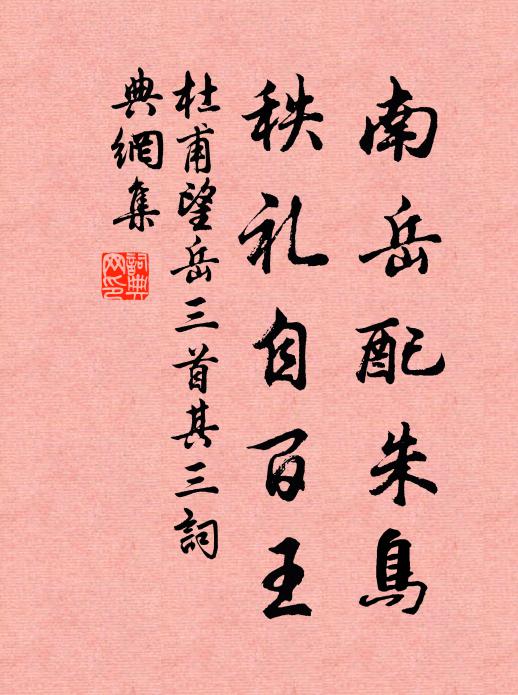 南岳配朱鳥
秩礼自百王
杜甫望岳三首其三詞
典網集
詞典网印